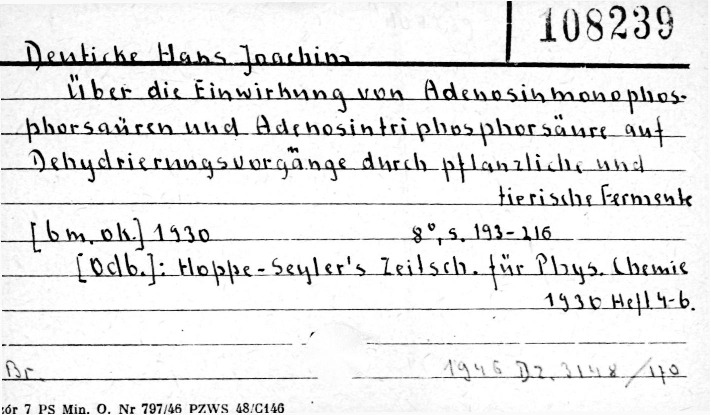 108239
Deuticke Hans Joachim
Über die Einwirkung von Adenosinmonophos-
phorsaüren und Adenosintriphosphorsäure auf
Dehydrierungsvorgänge durch pflanzliche und
tierische Fermente
[b m. ok.] 1930 8°, s. 193-216
[Odb.]: Hoppe-Seyler's Zeitsch. für Phys. Chemie
1930 Heft 4-6.
Br. 1946 Dz. 3148/170
zór 7 PS Min. O. Nr 797/46 PZWS 48/C146